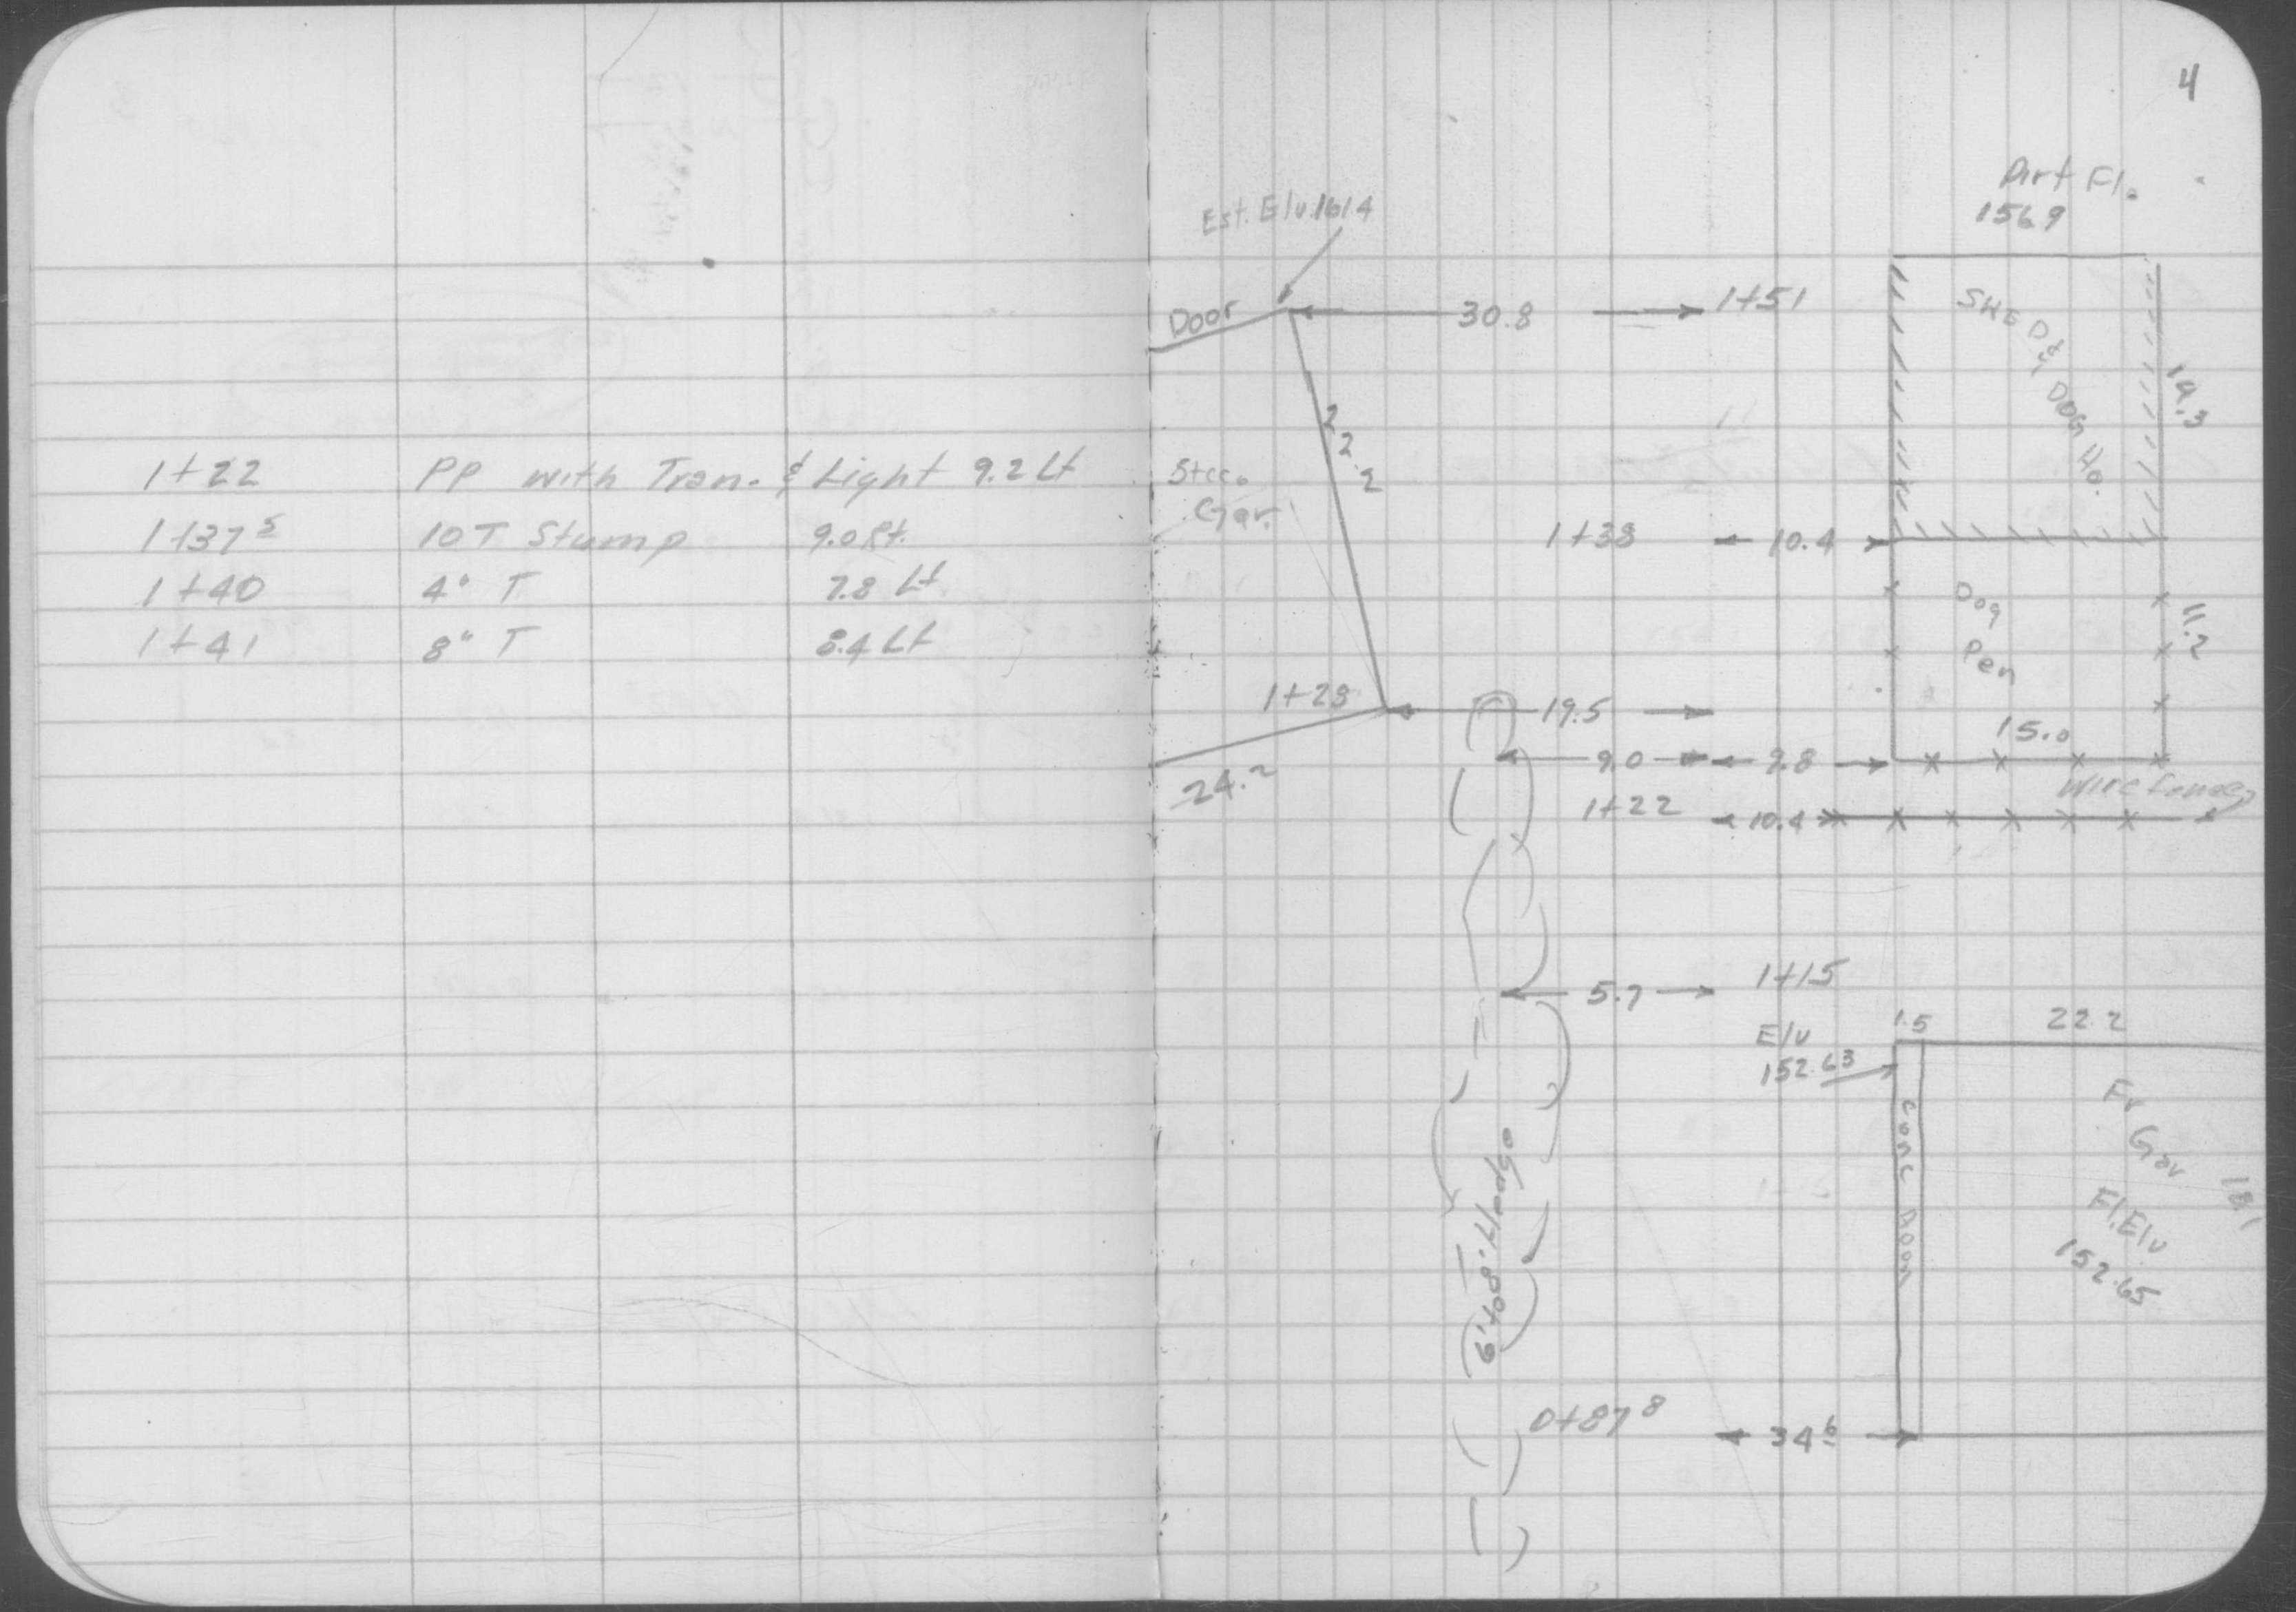 4
1+22 PP with Tran. & Light 9.2 Lt
1+37⁵ 10T Stump 9.0 Rt.
1+40 4" T 7.8 Lt
1+41 8" T 8.4 Lt
Dirt Fl.
156.9
Est. Elv. 161.4
Door
30.8
1+51
SHED & DOG HO.
14.3
22.2
Stcc.
Gar.
1+38
10.4
Dog
Pen
11.2
1+28
19.5
15.0
9.0
9.8
24.2
Wire fence
1+22
10.4
5.7
1+15
Elv
152.63
1.5
22.2
Conc Door
Fr
Gar
Fl. Elv
152.65
18.1
6' to 8' Hedge
0+87⁸
34⁶